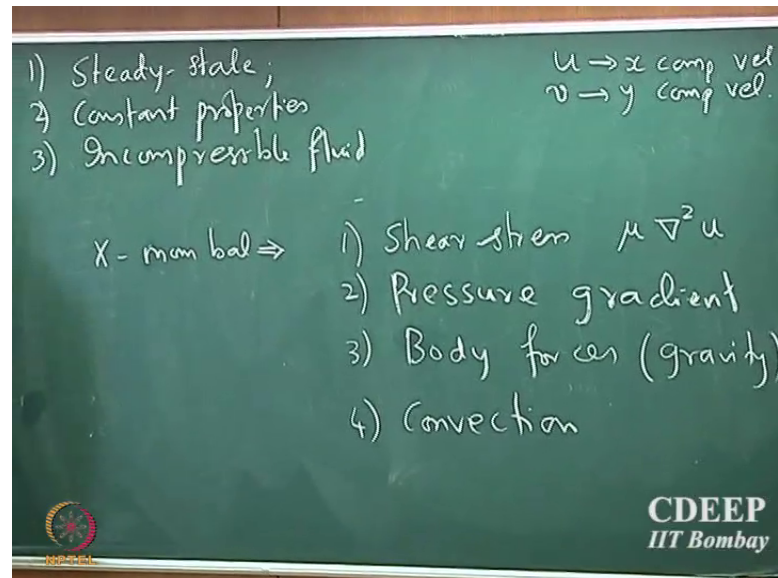 1) Steady-state;
2) Constant properties
3) Incompressible fluid
u → x comp vel
v → y comp vel.
X-mom bal ⇒
1) Shear stress μ ∇² u
2) Pressure gradient
3) Body forces (gravity)
4) Convection
CDEEP
IIT Bombay
NPTEL